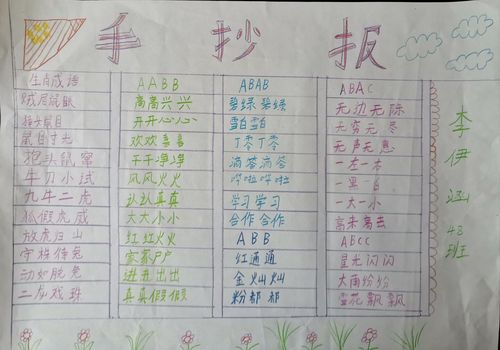 手抄报
生肖成语
贼眉鼠眼
獐头鼠目
鼠目寸光
抱头鼠窜
牛刀小试
九牛二虎
狐假虎威
放虎归山
守株待兔
动如脱兔
二龙戏珠
AABB
高高兴兴
开开心心
欢欢喜喜
干干净净
风风火火
认认真真
大大小小
红红火火
家家户户
进进出出
真真假假
ABAB
碧绿碧绿
雪白雪白
丁零丁零
滴答滴答
哗啦哗啦
学习学习
合作合作
ABB
红通通
金灿灿
粉都都
ABAC
无边无际
无穷无尽
无声无息
一左一右
一黑一白
一大一小
高来高去
ABCC
星光闪闪
大雨纷纷
雪花飘飘
李伊
43班